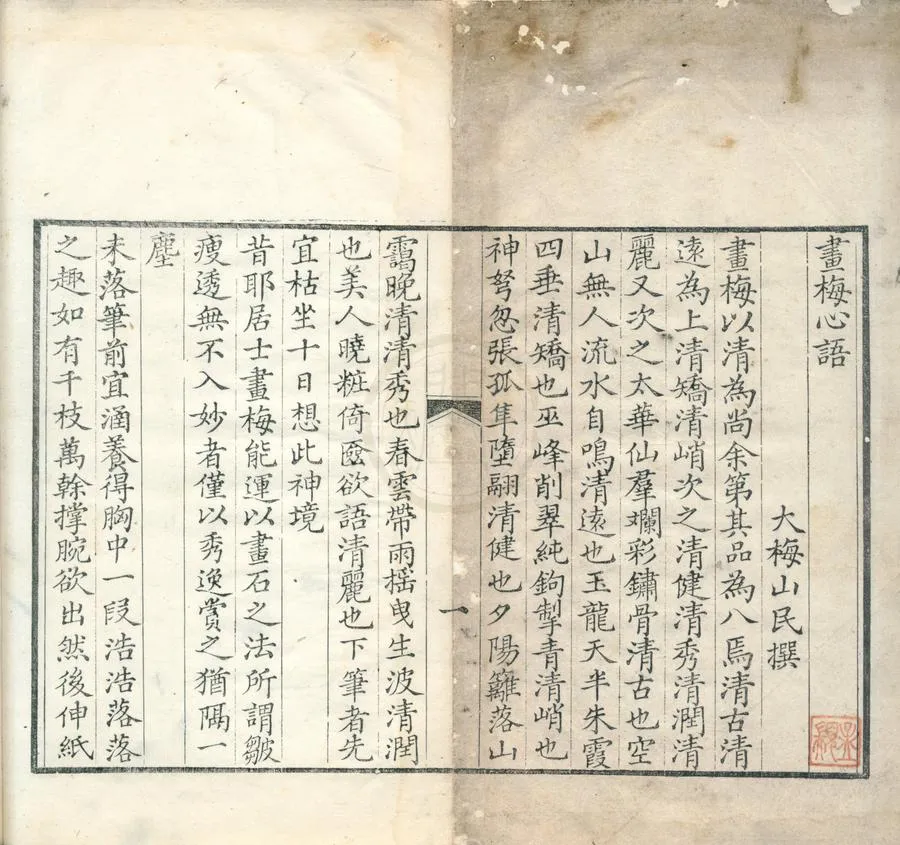 畫梅心語
大梅山民撰
畫梅以清為尚余第其品為八焉清古清
遠為上清矯清峭次之清健清秀清潤清
麗又次之太華仙羣斕彩鏽骨清古也空
山無人流水自鳴清遠也玉龍天半朱霞
四垂清矯也巫峰削翠純鉤掣青清峭也
神弩忽張孤隼墮翮清健也夕陽籬落山
靄晚清清秀也春雲帶雨摇曳生波清潤
也美人曉粧倚奩欲語清麗也下筆者先
宜枯坐十日想此神境
昔耶居士畫梅能運以畫石之法所謂皺
瘦透無不入妙者僅以秀逸賞之猶隅一
塵
未落筆前宜涵養得胸中一段浩浩落落
之趣如有千枝萬榦撑腕欲出然後伸紙
一